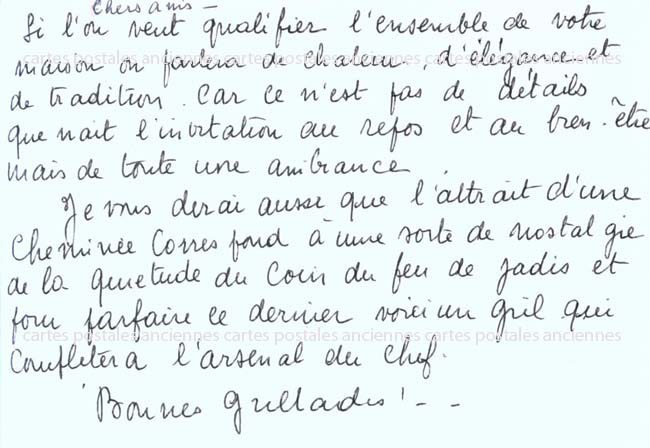 Chers amis -
Si l'on veut qualifier l'ensemble de votre
cartes postales anciennes cartes postales anciennes cartes postales anciennes
maison on parlera de chaleur, d'élégance et
de tradition. Car ce n'est pas de détails
que nait l'invitation au repos et au bien-être
mais de toute une ambiance.
Je vous dirai aussi que l'attrait d'une
cheminée correspond à une sorte de nostalgie
de la quietude du coin du feu de jadis et
pour parfaire ce dernier voici un gril qui
cartes postales anciennes cartes postales anciennes cartes postales anciennes
complètera l'arsenal du chef.
Bonnes grillades ! - -